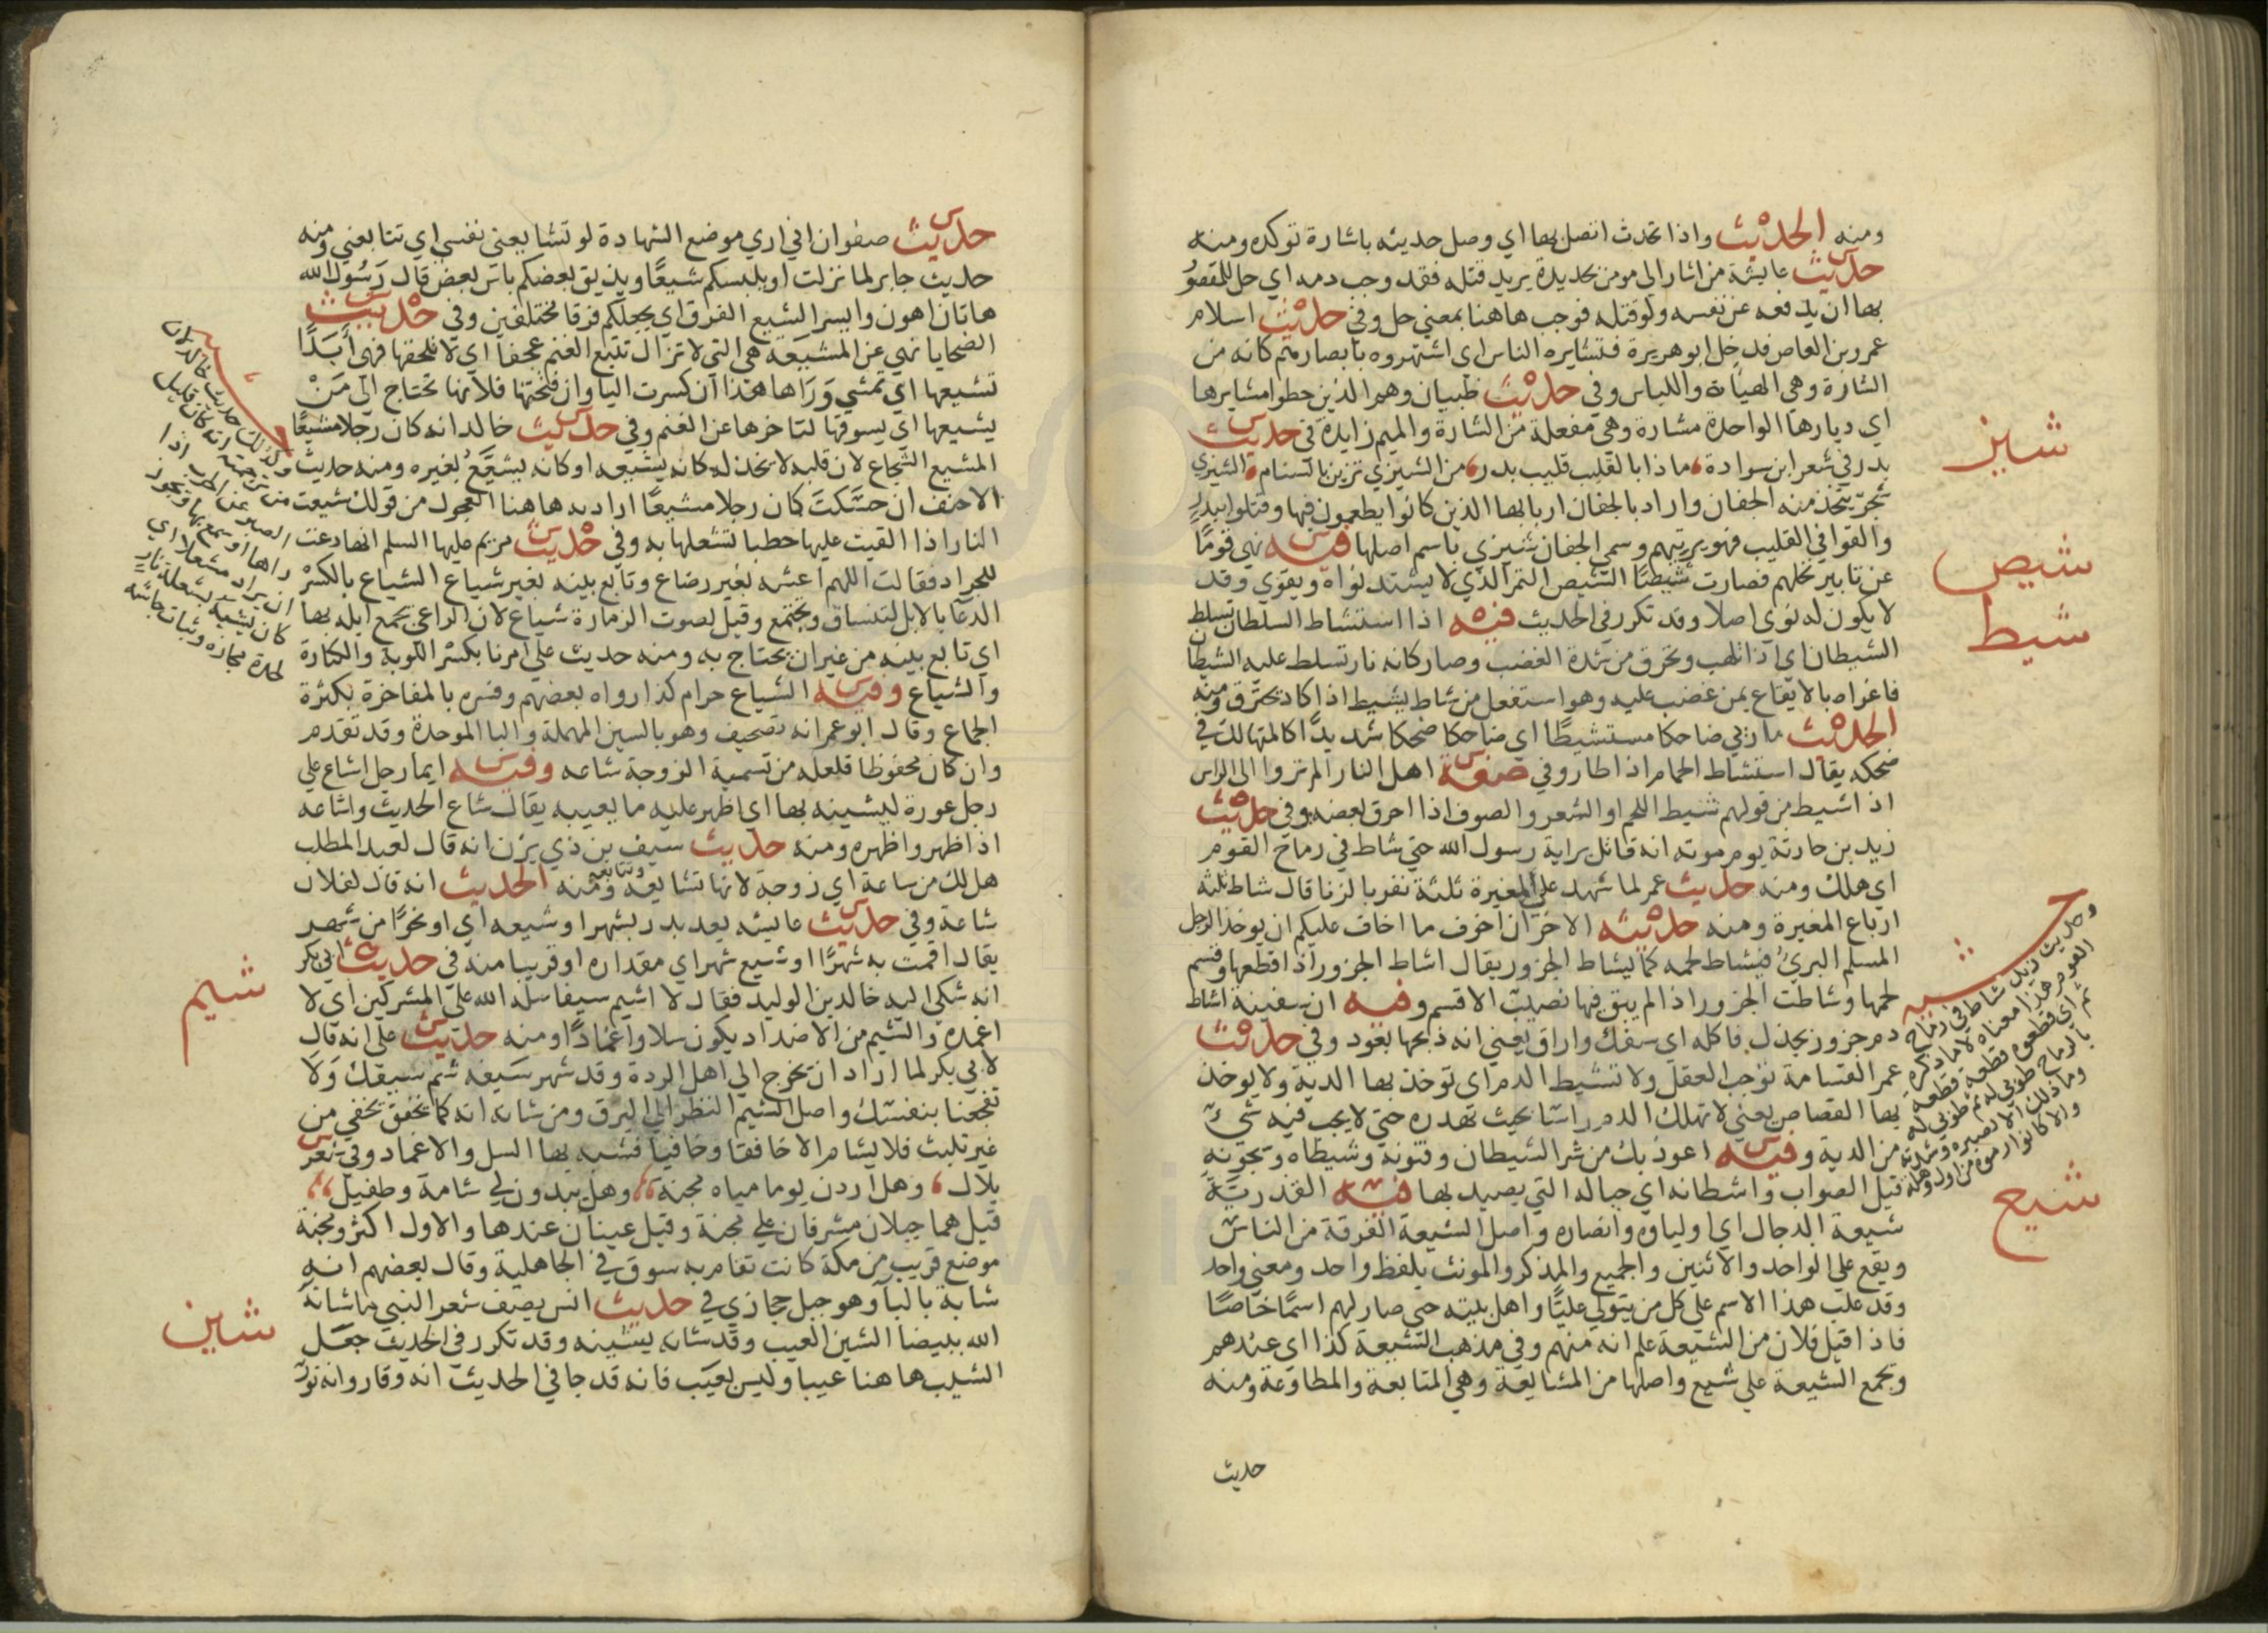 ومنه الحديث واذا تحدث اتصل بها اي وصل حديثه باشارة توكده ومنه
حديث عايشة من اشار الي مومن بحديدة يريد قتله فقد وجب دمه اي حل للمقصود
بها ان يدفعه عن نفسه ولو قتله فوجب هاهنا بمعني حل وفي حديث اسلام
عمرو بن العاص فدخل ابو هريرة فتشايره الناس اي اشتهروه بابصارهم كانه من
الشارة وهي الهياة واللباس وفي حديث ظبيان وهم الذين خطوا مشايرها
اي ديارها الواحدة مشارة وهي مفعلة من الشارة والميم زايدة في حديث
شيز
بدر في شعر ابن سوادة ماذا بالقليب قليب بدر من الشيزي تزين بالسنام الشيزي
شجر يتخذ منه الجفان واراد بالجفان اربابها الذين كانوا يطعمون فيها وقتلوا ببدر
والقوا في القليب فهو يرثيهم وسمي الجفان شيزي باسم اصلها فيه نهي قوما
شيص
عن تابير نخلهم فصارت شيصا الشيص التمر الذي لا يشتد نواه ويقوي وقد
لا يكون له نوي اصلا وقد تكرر في الحديث فيه اذا استشاط السلطان تسلط
شيط
الشيطان اي اذا تلهب وتحرق من شدة الغضب وصار كانه نار تسلط عليه الشيطان
فاغراه بالايقاع بمن غضب عليه وهو استفعل من شاط يشيط اذا كاد يحترق ومنه
الحديث ما رئي ضاحكا مستشيطا اي ضاحكا ضحكا شديدا كالمتهالك في
ضحكه يقال استشاط الحمام اذا طار وفي صفة اهل النار الم تروا الي الراس
اذا شيط من قولهم شيط اللحم او الشعر والصوف اذا احرق بعضه وفي حديث
زيد بن حارثة يوم موته انه قاتل براية رسول الله حتي شاط في رماح القوم
اي هلك ومنه حديث عمر لما شهد علي المغيرة ثلثة نفر بالزنا قال شاط ثلثة
ارباع المغيرة ومنه حديثه الاخر ان اخوف ما اخاف عليكم ان يوخذ الرجل
المسلم البريء فيشاط لحمه كما يشاط الجزور يقال اشاط الجزور اذا قطعها وقسم
لحمها وشاطت الجزور اذا لم يبق فيها نصيب الا قسم وفيه ان سفينة اشاط
دم جزور بجذل فاكله اي سفك واراق يعني انه ذبحها بعود وفي حديث
عمر القسامة توجب العقل ولا تشيط الدم اي توخذ بها الدية ولا يوخذ
بها القصاص يعني لا تهلك الدم راسا بحيث تهدره حتي لا يجب فيه شيء
من الدية وفيه اعوذ بك من شر الشيطان وفتونه وشيطاه وشجونه
قيل الصواب واشطانه اي حباله التي يصيد بها فيه القدرية
شيع
شيعة الدجال اي اولياوه وانصاره واصل الشيعة الفرقة من الناس
ويقع علي الواحد والاثنين والجميع والمذكر والمونث بلفظ واحد ومعني واحد
وقد غلب هذا الاسم علي كل من يتولي عليا واهل بيته حتي صار لهم اسما خاصا
فاذا قيل فلان من الشيعة علم انه منهم وفي مذهب الشيعة كذا اي عندهم
وتجمع الشيعة علي شيع واصلها من المشايعة وهي المتابعة والمطاوعة ومنه
حديث
وحديث زيد شاط في رماح
القوم هذا معناه لا ما ذكره
اي قطعوه قطعة قطعة
بالرماح طوبي له ثم طوبي له
وما ذلك الا لصبره وشدته
والا كانوا رموه من اول وهلة
حديث صفوان اني اري موضع الشهادة لو تشايعني نفسي اي تتابعني ومنه
حديث جابر لما نزلت او يلبسكم شيعا ويذيق بعضكم باس بعض قال رسول الله
هاتان اهون وايسر الشيع الفرق اي يجعلكم فرقا مختلفين وفي حديث
الضحايا نهي عن المشيعة هي التي لا تزال تتبع الغنم عجفا اي لا تلحقها فهي ابدا
تشيعها اي تمشي وراها هذا ان كسرت اليا وان فتحتها فلانها تحتاج الي من
يشيعها اي يسوقها لتاخرها عن الغنم وفي حديث خالد انه كان رجلا مشيعا
المشيع الشجاع لان قلبه لا يخذله كانه يشيعه او كانه يشيع بغيره ومنه حديث
الاحنف ان حسكت كان رجلا مشيعا اراد به هاهنا العجول من قولك شيعت
النار اذا القيت عليها حطبا تشعلها به وفي حديث مريم عليها السلم انها دعت
للجراد فقالت اللهم اعشه بغير رضاع وتابع بينه بغير شياع الشياع بالكسر
الدعا بالابل لتنساق وتجتمع وقيل لصوت الزمارة شياع لان الراعي يجمع ابله بها
اي تابع بينه من غير ان يحتاج به ومنه حديث علي امرنا بكسر الكوبة والكنارة
والشياع وفيه الشياع حرام كذا رواه بعضهم وفسره بالمفاخرة بكثرة
الجماع وقال ابو عمر انه تصحيف وهو بالسين المهملة والبا الموحدة وقد تقدم
وان كان محفوظا فلعله من تسمية الزوجة شاعة وفيه ايما رجل اشاع علي
رجل عورة ليشينه بها اي اظهر عليه ما يعيبه يقال شاع الحديث واشاعه
اذا ظهر واظهره ومنه حديث سيف بن ذي يزن انه قال لعبد المطلب
هل لك من ساعة اي زوجة لانها تشايعه وتتابعه ومنه الحديث انه قال لفلان
شاعة وفي حديث عايشه بعد بدر بشهر او شيعه اي او نحوا من شهر
يقال اقمت به شهرا او شيع شهر اي مقداره او قريبا منه في حديث ابي بكر
شيم
انه شكي اليه خالد بن الوليد فقال لا اشيم سيفا سله الله علي المشركين اي لا
اغمده والشيم من الاضداد يكون سلا واغمادا ومنه حديث علي انه قال
لابي بكر لما اراد ان يخرج الي اهل الردة وقد شهر سيفه شم سيفك ولا
تفجعنا بنفسك واصل الشيم النظر الي البرق ومن شانه انه كما يخفق يخفي من
غير تلبث فلا يشام الا خافقا وخافيا فشبه بها السل والاغماد وفي شعر
بلال وهل اردن يوما مياه مجنة وهل يبدون لي شامة وطفيل
قيل هما جبلان مشرفان علي مجنة وقيل عينان عندها والاول اكثر ومجنة
موضع قريب من مكة كانت تقام به سوق في الجاهلية وقال بعضهم انه
شابة بالبا وهو جبل حجازي في حديث انس يصف شعر النبي ما شانه
شين
الله ببيضا الشين العيب وقد شانه يشينه وقد تكرر في الحديث جعل
الشيب هاهنا عيبا وليس بعيب فانه قد جا في الحديث انه وقار وانه نور
وكذلك حديث خالد لان
من ترجمته انه كان قليل
الصبر عن الحرب اذا
راها او سمع بها ويجوز
ان يراد مشعلا اي
كان يشبه بشعلة نار
لحدة مجازه وثبات جاشه